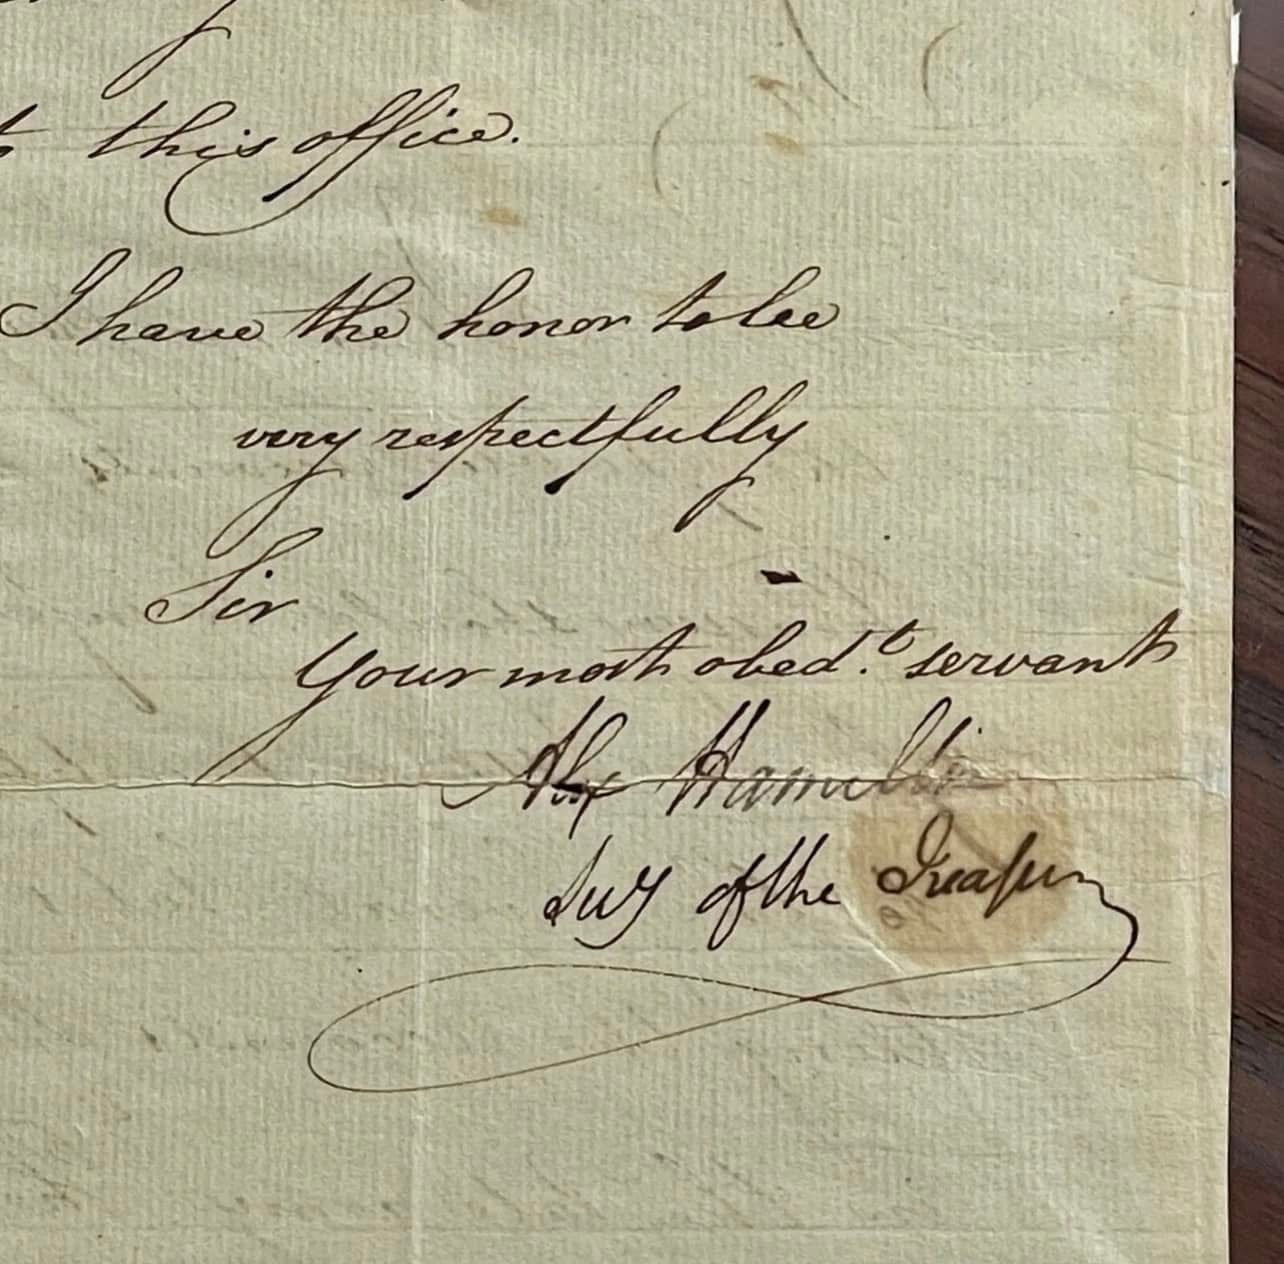 to this office.
I have the honor to be
very respectfully
Sir
Your most obed.t servant
Alex Hamilton
Secy of the Treasury